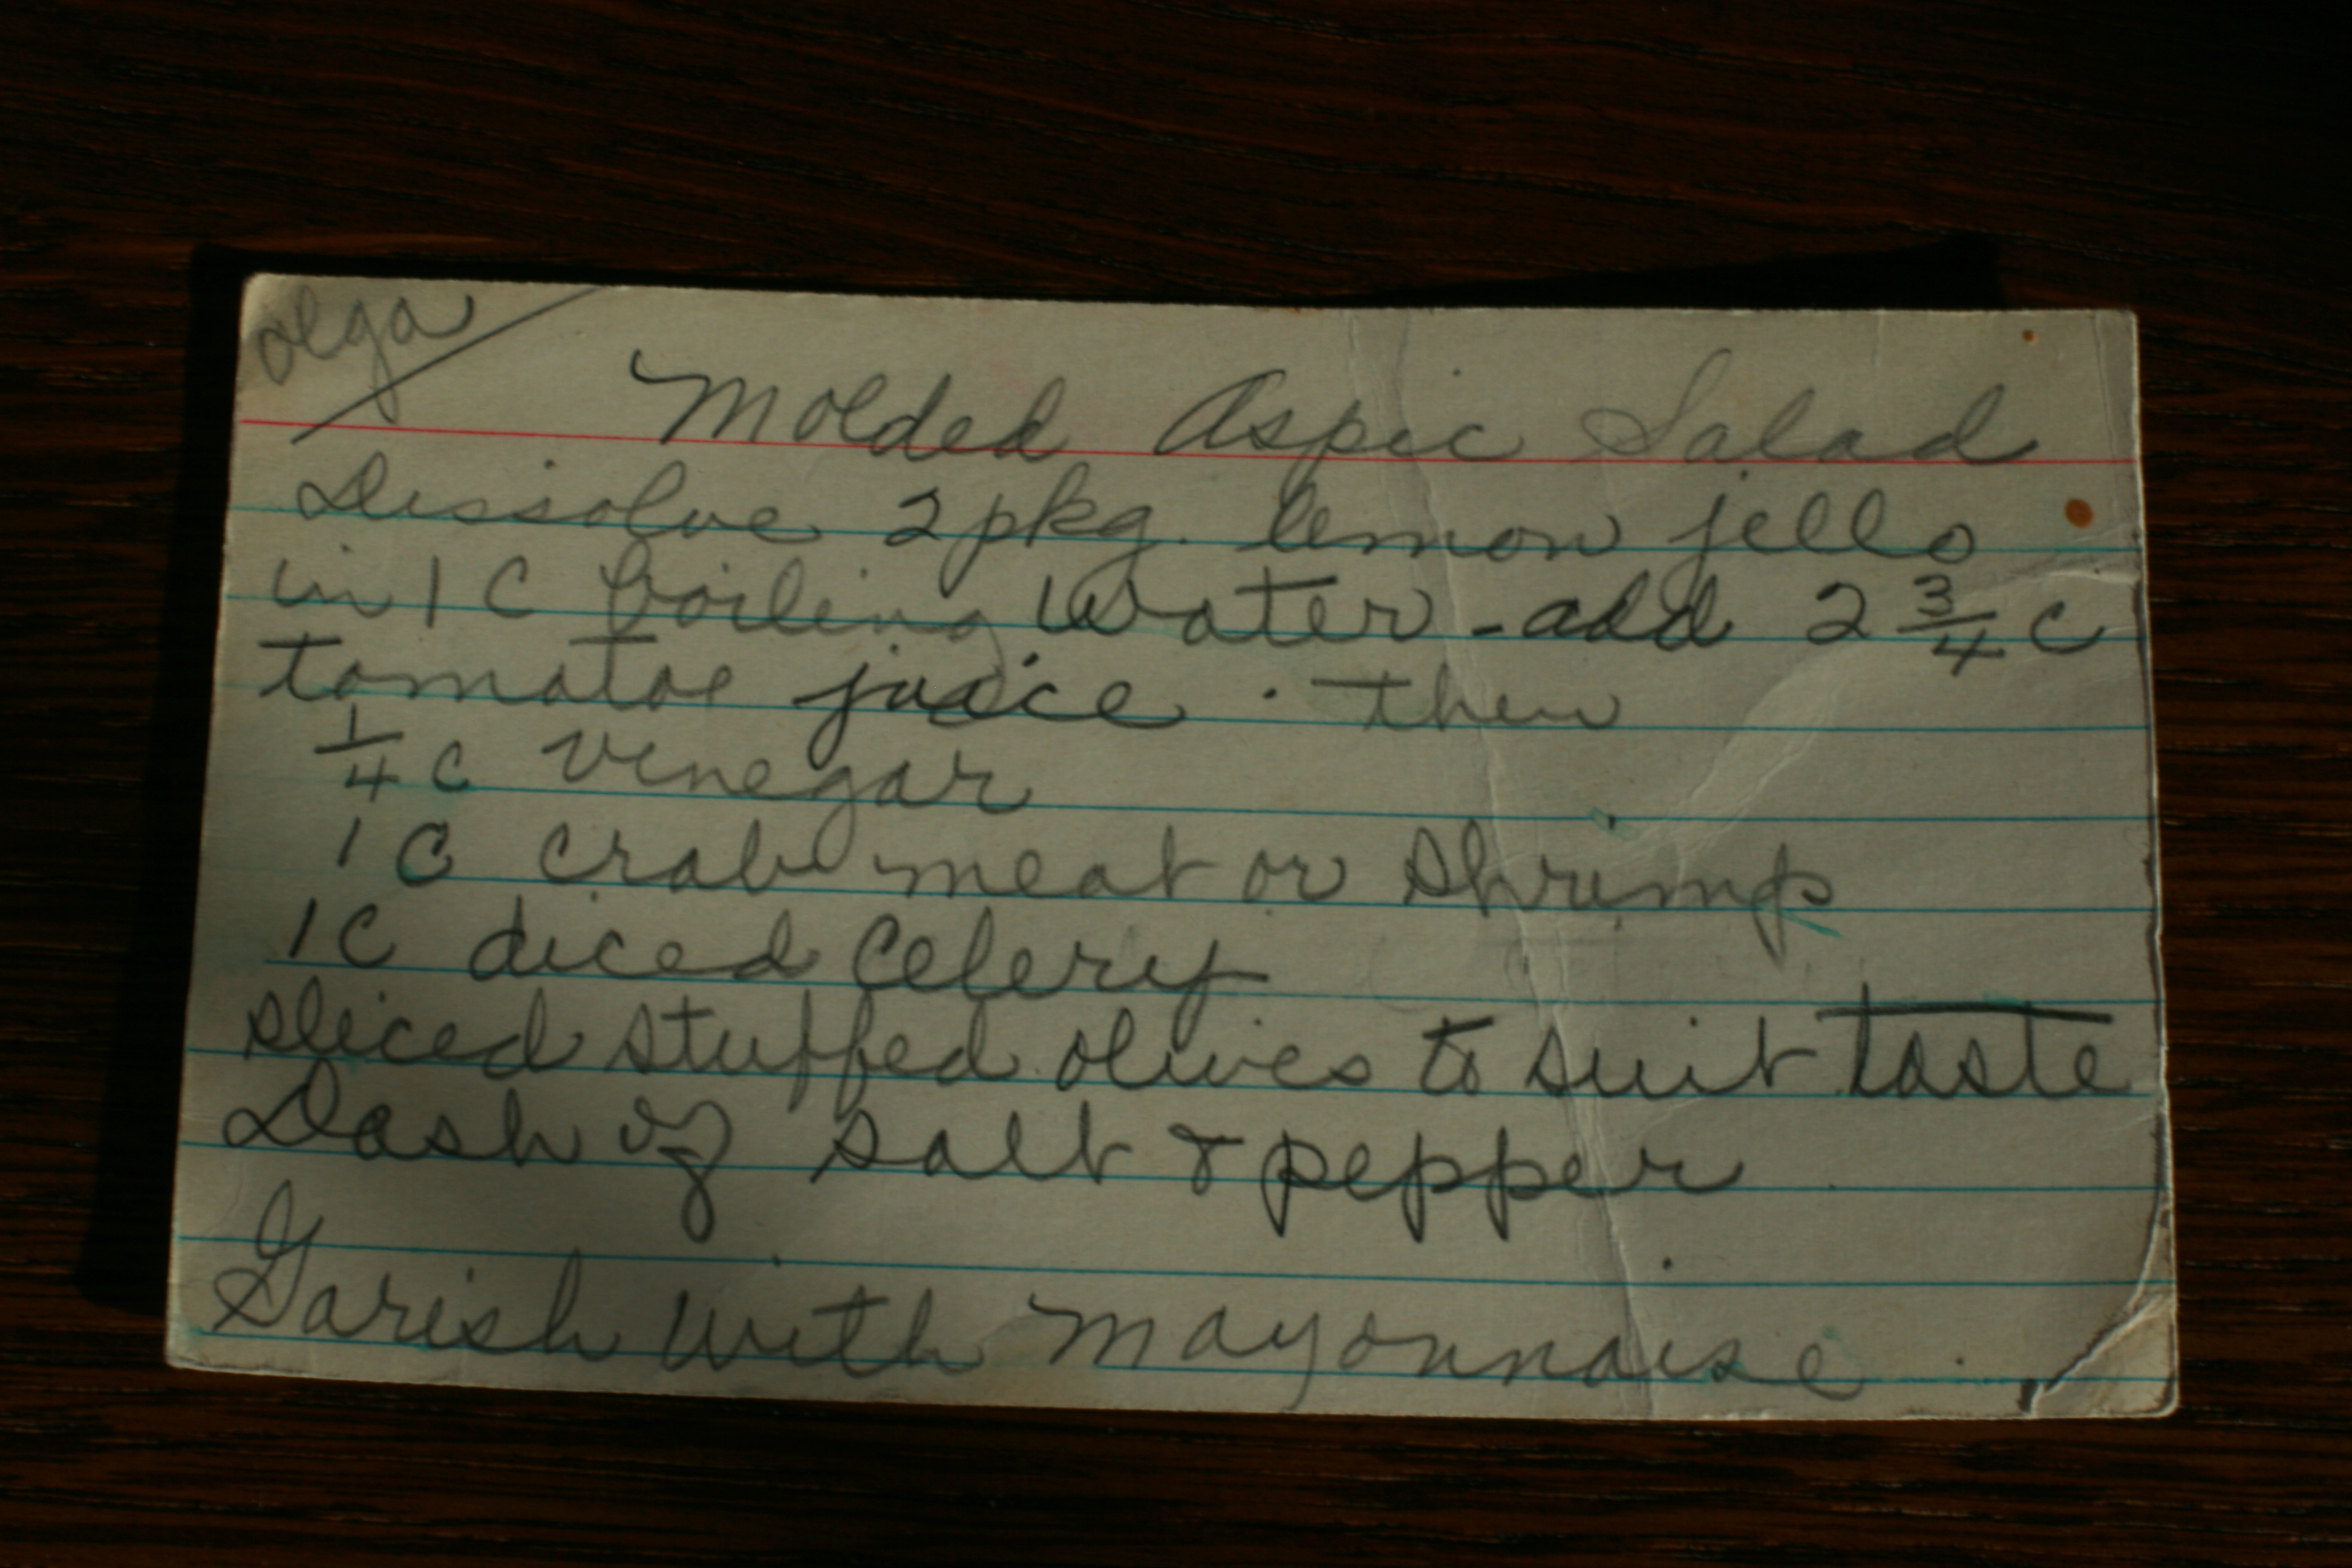 Olga
Molded Aspic Salad
Dissolve 2 pkg. lemon jello
in 1 C boiling water - add 2 3/4 c
tomatoe juice. then
1/4 c vinegar
1 C crab meat or shrimp
1 C diced celery
sliced stuffed olives to suit taste
Dash of salt & pepper
Garish with mayonnaise.